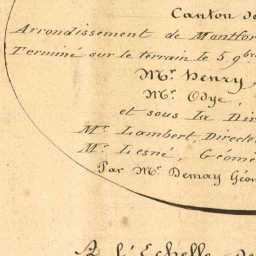 Canton de
Arrondissement de Montfor
Terminé sur le terrain le 5 9bre
Mr. Henry,
Mr. Odye,
et sous la Dir
Mr. Lambert, Direct
Mr. Lesné, Géomè
Par Mr. Demay Géom
A l'Echelle de